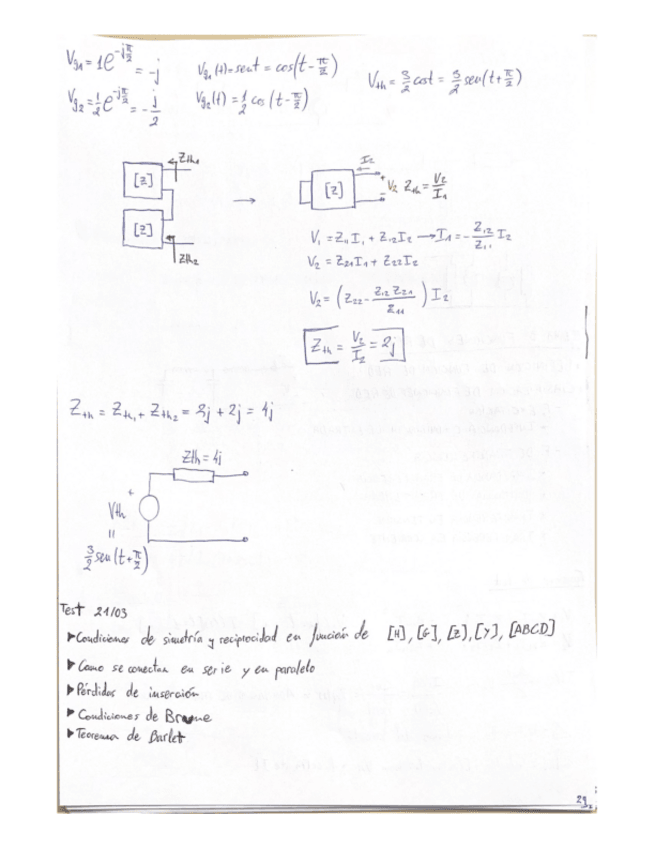 Vg1 = 1e^{-jπ/2} = -j
Vg1(t) = sent = cos(t - π/2)
Vth = 3/2 cost = 3/2 sen(t + π/2)
Vg2 = 1/2 e^{-jπ/2} = -j/2
Vg2(t) = 1/2 cos(t - π/2)
Zth1
[Z]
[Z]
Zth2
→
I2
[Z]
+
-
V2 Zth = V2/I1
V1 = Z11 I1 + Z12 I2 → I1 = - Z12/Z11 I2
V2 = Z21 I1 + Z22 I2
V2 = (Z22 - Z12 Z21/Z11) I2
Zth = V2/I2 = 2j
Zth = Zth1 + Zth2 = 2j + 2j = 4j
Zth = 4j
+
Vth
=
3/2 sen(t + π/2)
Test 21/03
▶ Condiciones de simetría y reciprocidad en función de [H], [G], [Z], [Y], [ABCD]
▶ Como se conectan en serie y en paralelo
▶ Pérdidas de inserción
▶ Condiciones de Brune
▶ Teorema de Barlet